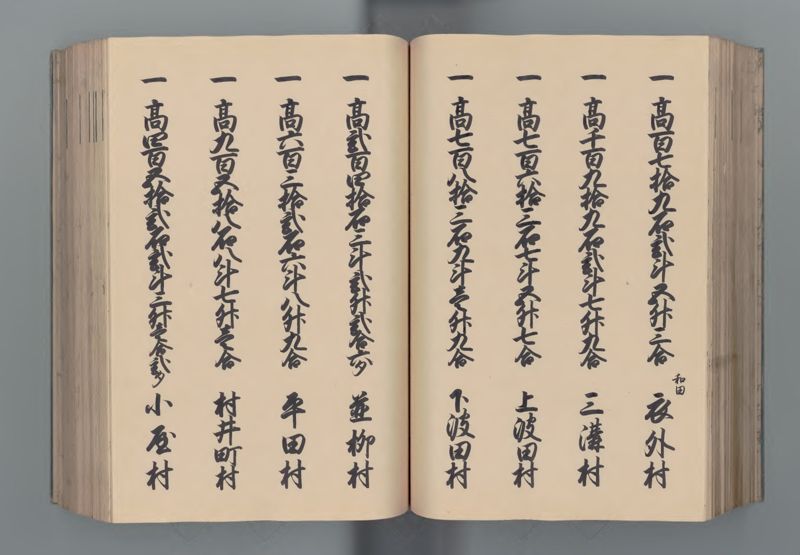 一 高百七拾九石弐斗五升三合 和田 衣外村
一 高千百九拾九石弐斗七升九合 三溝村
一 高七百六拾三石七斗五升七合 上波田村
一 高七百八拾三石九斗壱升九合 下波田村
一 高弐百四拾石三斗弐升弐合六夕 並柳村
一 高六百三拾弐石六斗八升九合 平田村
一 高九百五拾八石八斗七升壱合 村井町村
一 高四百五拾弐石弐斗三升壱合弐夕 小屋村